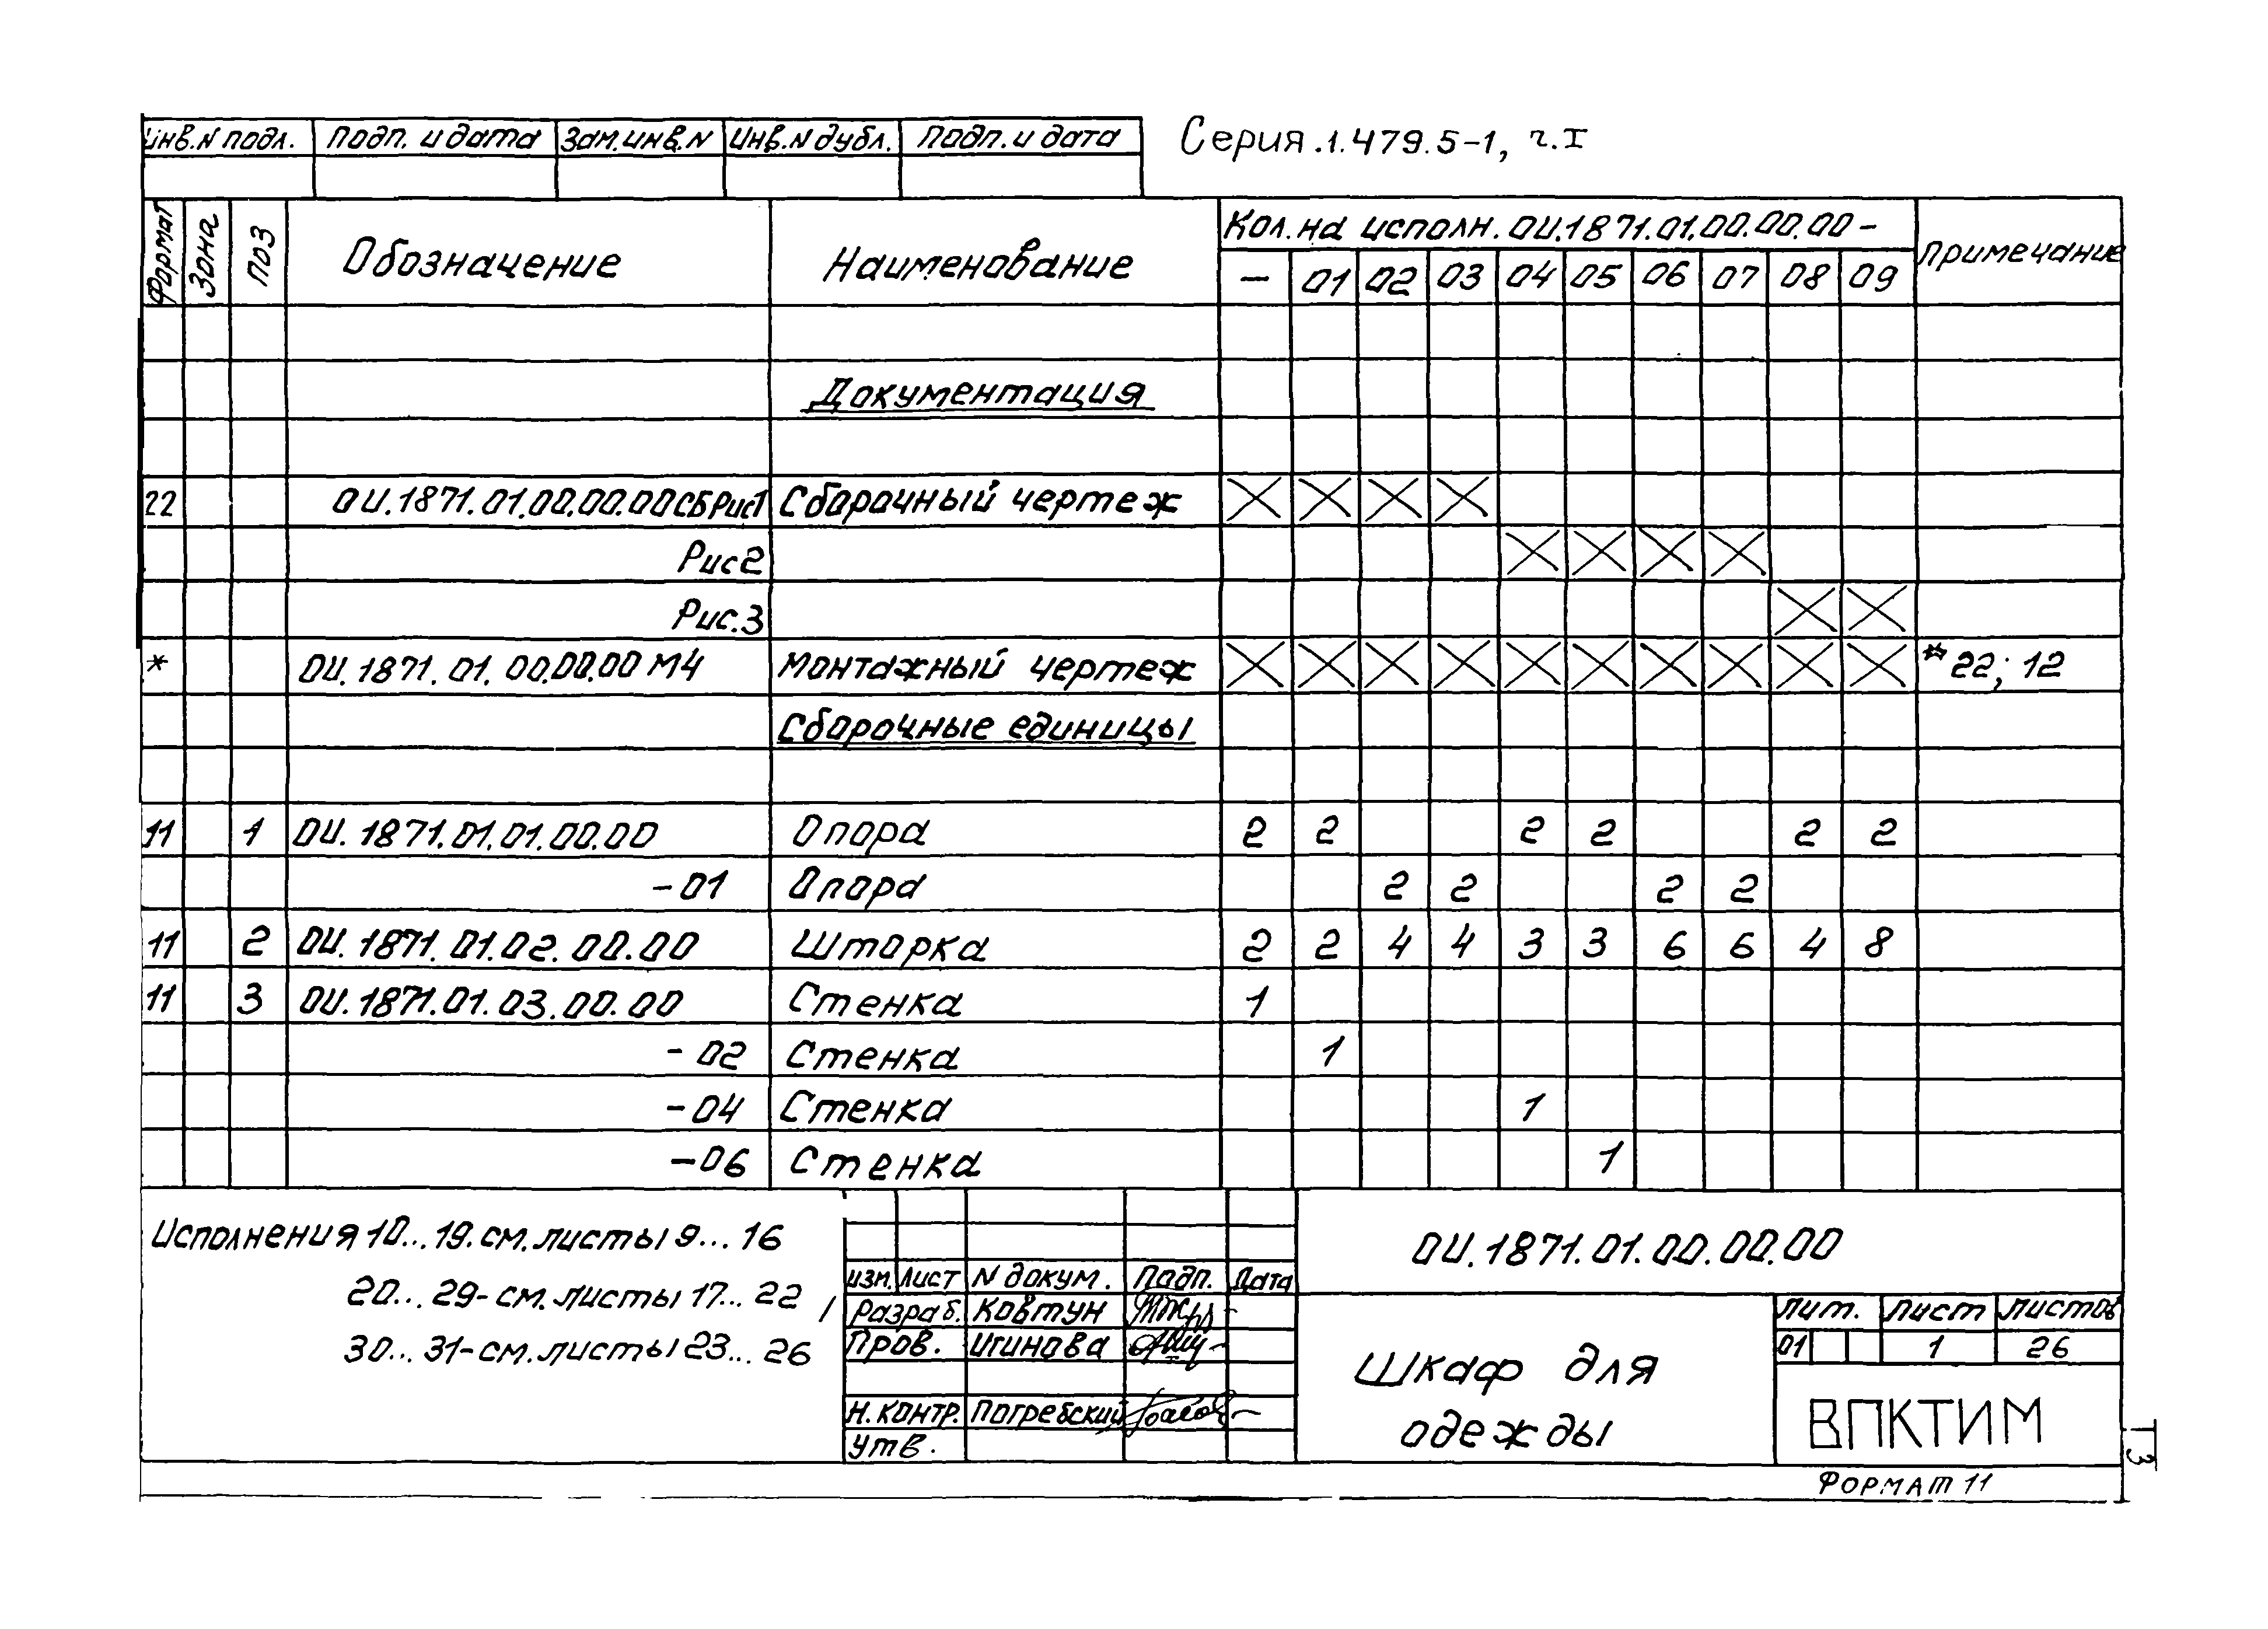 Инв.N подл. Подп. и дата Зам.инв.N Инв.N дубл. Подп. и дата Серия.1.479.5-1, ч.I
Формат Зона Поз Обозначение Наименование Кол. на исполн. ОИ.1871.01.00.00.00- Примечание
- 01 02 03 04 05 06 07 08 09
Документация
22 ОИ.1871.01.00.00.00СБ Рис1 Сборочный чертеж
Рис2
Рис.3
* ОИ.1871.01.00.00.00 МЧ Монтажный чертеж * 22; 12
Сборочные единицы
11 1 ОИ.1871.01.01.00.00 Опора 2 2 2 2 2 2
-01 Опора 2 2 2 2
11 2 ОИ.1871.01.02.00.00 Шторка 2 2 4 4 3 3 6 6 4 8
11 3 ОИ.1871.01.03.00.00 Стенка 1
-02 Стенка 1
-04 Стенка 1
-06 Стенка 1
Исполнения 10...19.см.листы 9...16
20...29-см.листы 17...22
30...31-см.листы 23...26
Изм. Лист N докум. Подп. Дата
Разраб. Ковтун
Пров. Игинова
Н.контр. Погребский
Утв.
ОИ.1871.01.00.00.00
Шкаф для
одежды
Лит. Лист Листов
01 1 26
ВПКТИМ
Формат 11
Т3